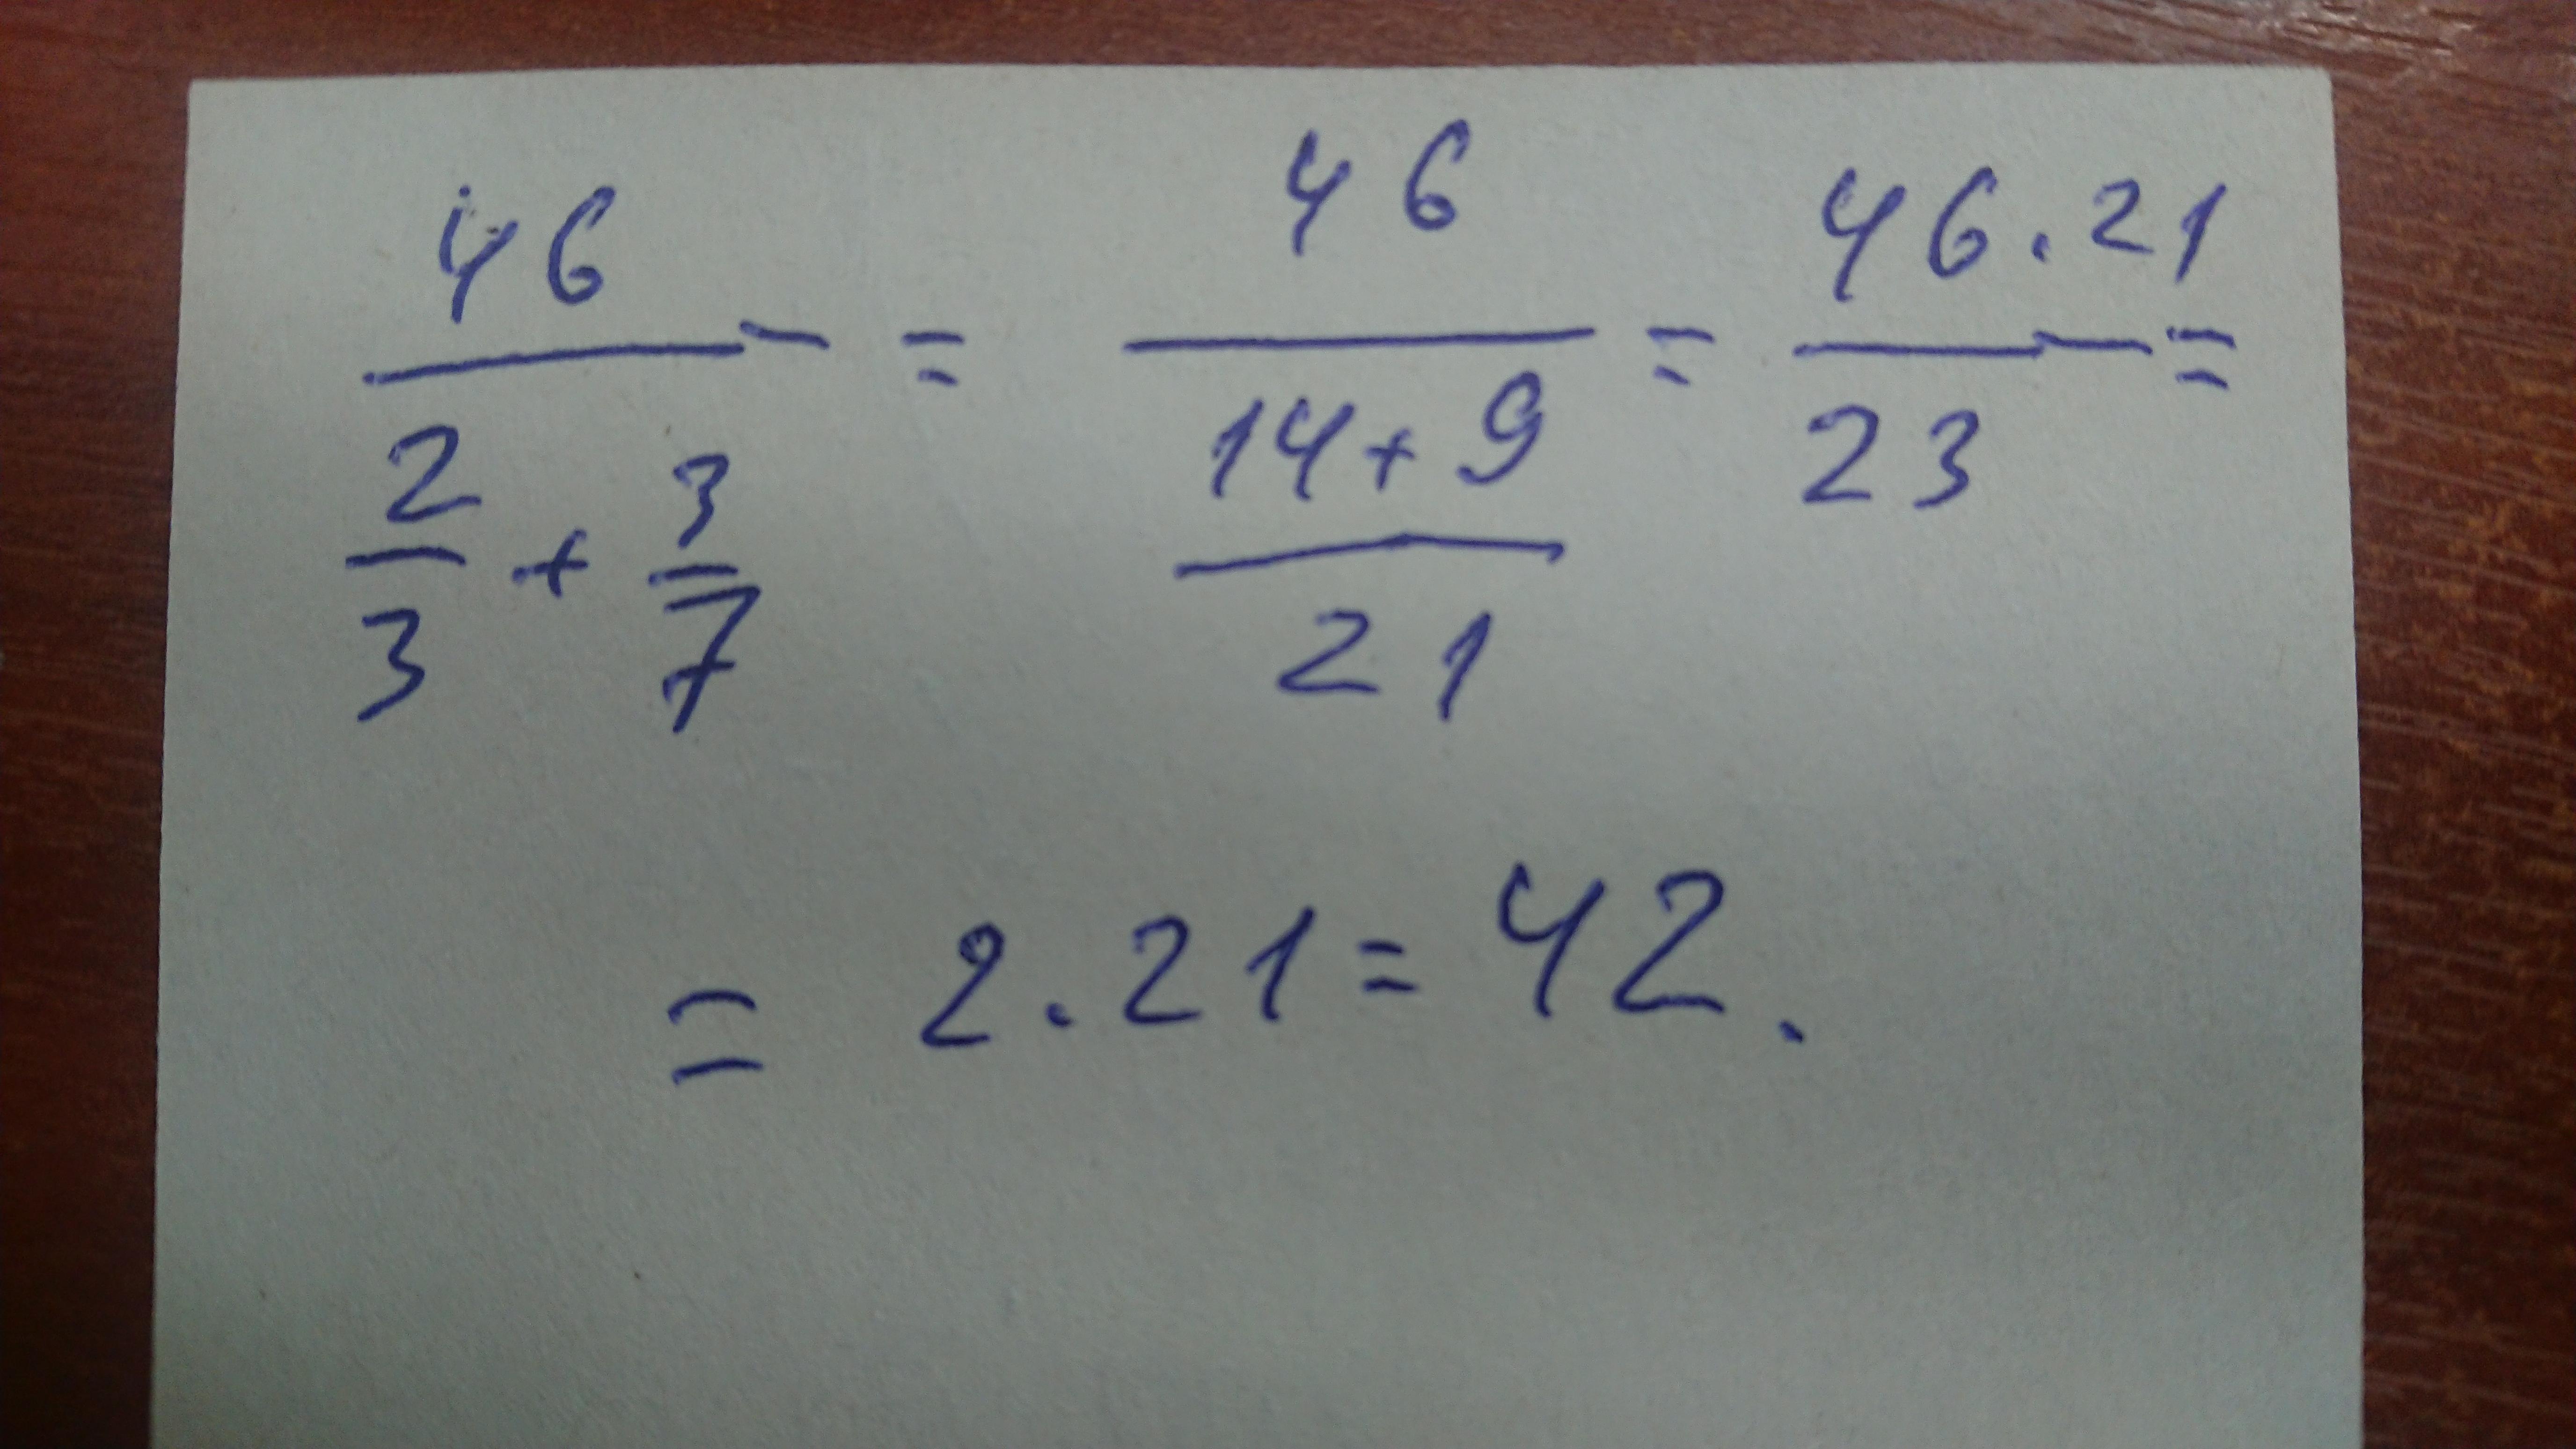 46/(2/3 + 3/7) = 46/((14+9)/21) = 46.21/23 =
= 2.21=42.